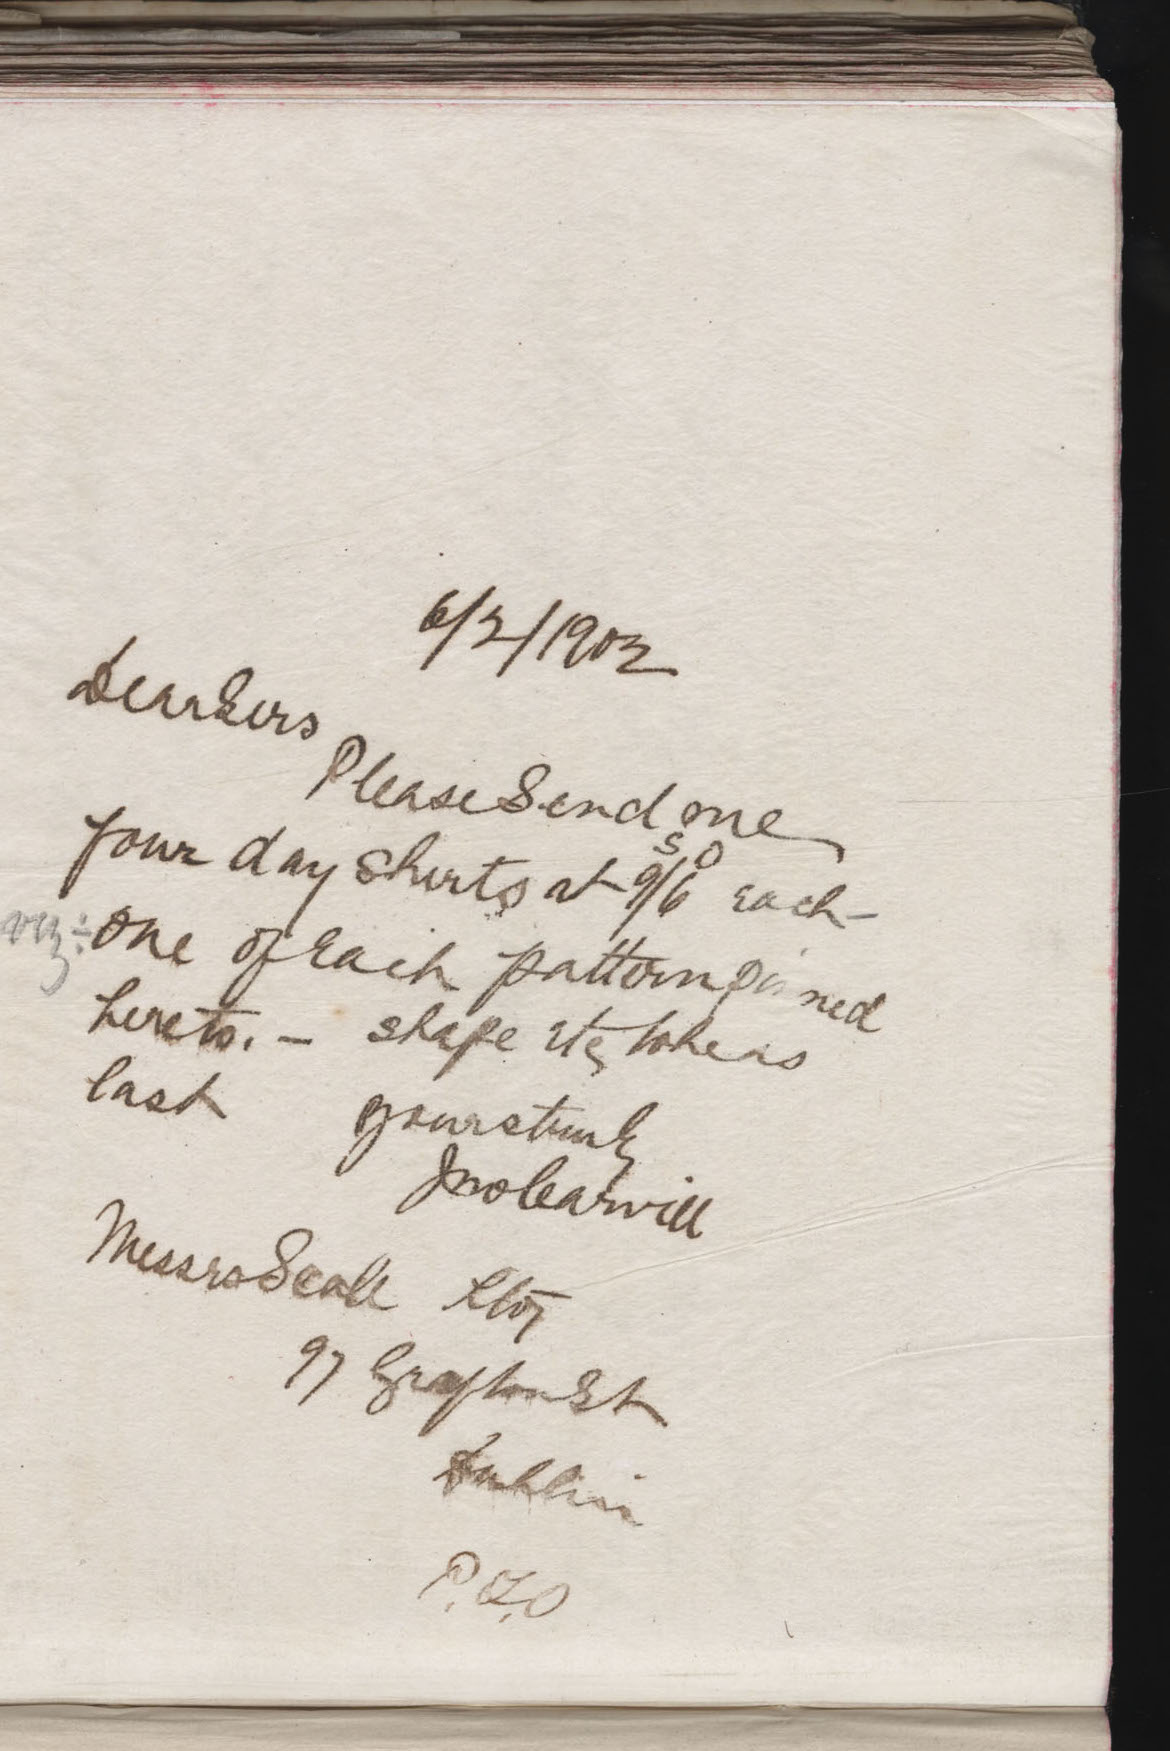 6/2/1902
Dear Sirs
Please Send me
four day Shirts at 9s/6D each -
viz:- one of each pattern pinned
hereto. - shape etc to be as
last yours truly
Jno Carvill
Messrs Scall
97 Grafton St
Dublin
P.T.O